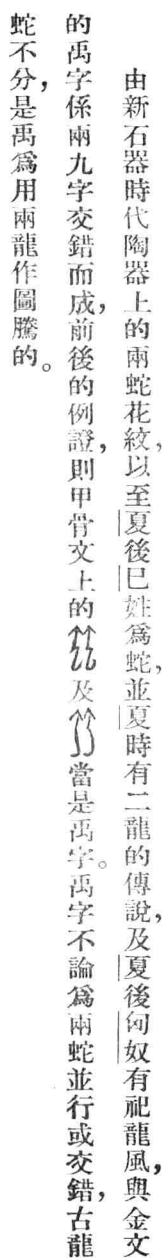 由新石器時代陶器上的兩蛇花紋，以至夏後巳姓爲蛇，並夏時有二龍的傳說，及夏後匈奴有祀龍風，與金文
的禹字係兩九字交錯而成，前後的例證，則甲骨文上的及當是禹字。禹字不論爲兩蛇並行或交錯，古龍
蛇不分，是禹爲用兩龍作圖騰的。